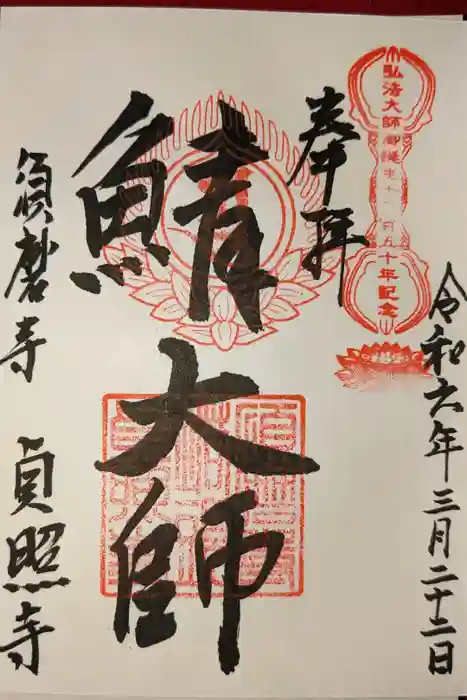 弘法大師御誕生千二百五十年記念
奉拝
令和六年三月二十二日
鯖大師
須磨寺 貞照寺